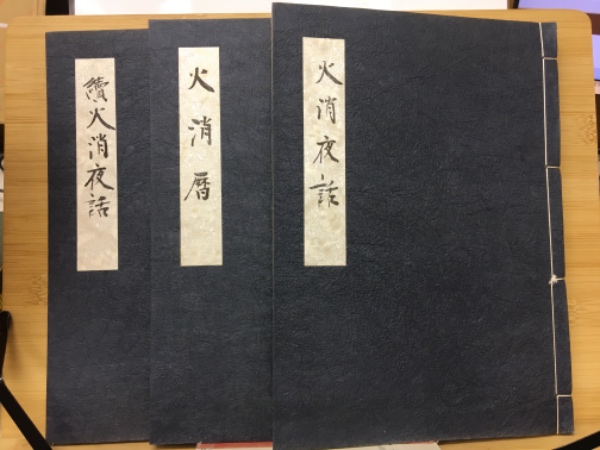 火消夜話
火消暦
續火消夜話